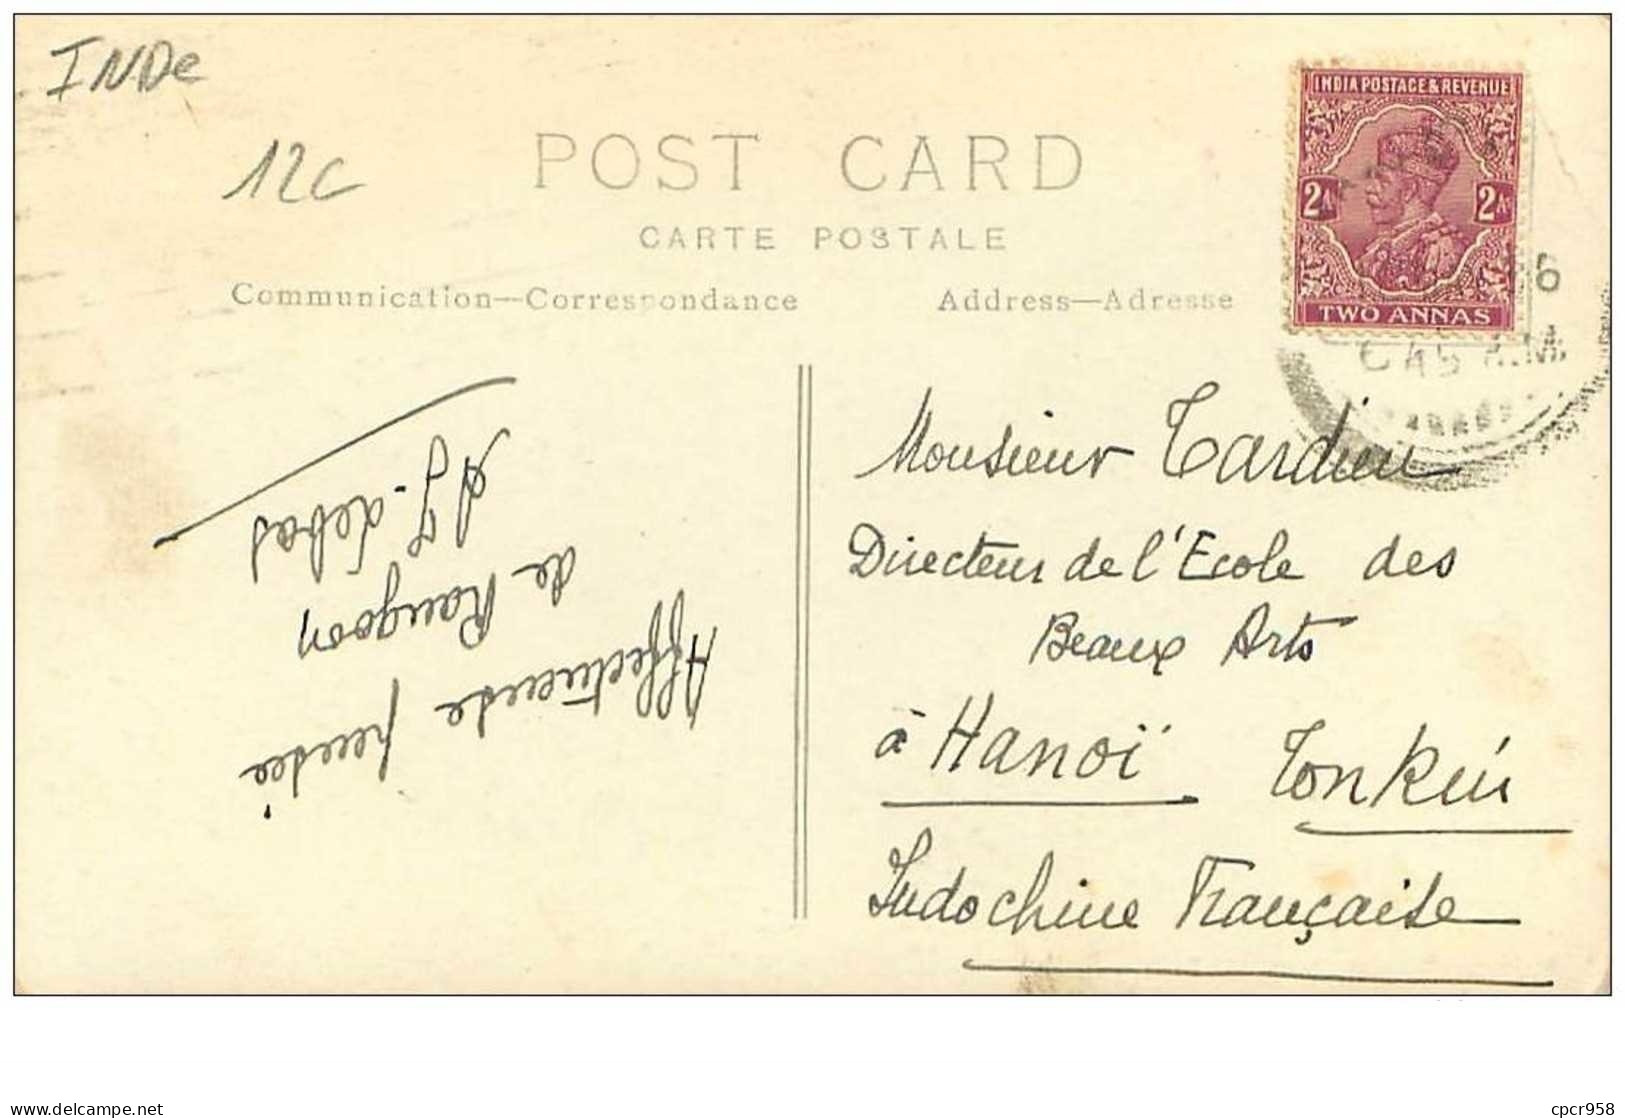 INDe
12C
POST CARD
CARTE POSTALE
Communication—Correspondance
Address—Adresse
INDIA POSTAGE & REVENUE
2A 2As
TWO ANNAS
6
45 A.M.
Affectueuse pensée
de Rangoon
Monsieur Tardieu
Directeur de l'Ecole des
Beaux Arts
à Hanoï Tonkin
Indochine Française
delcampe.net
cpcr958